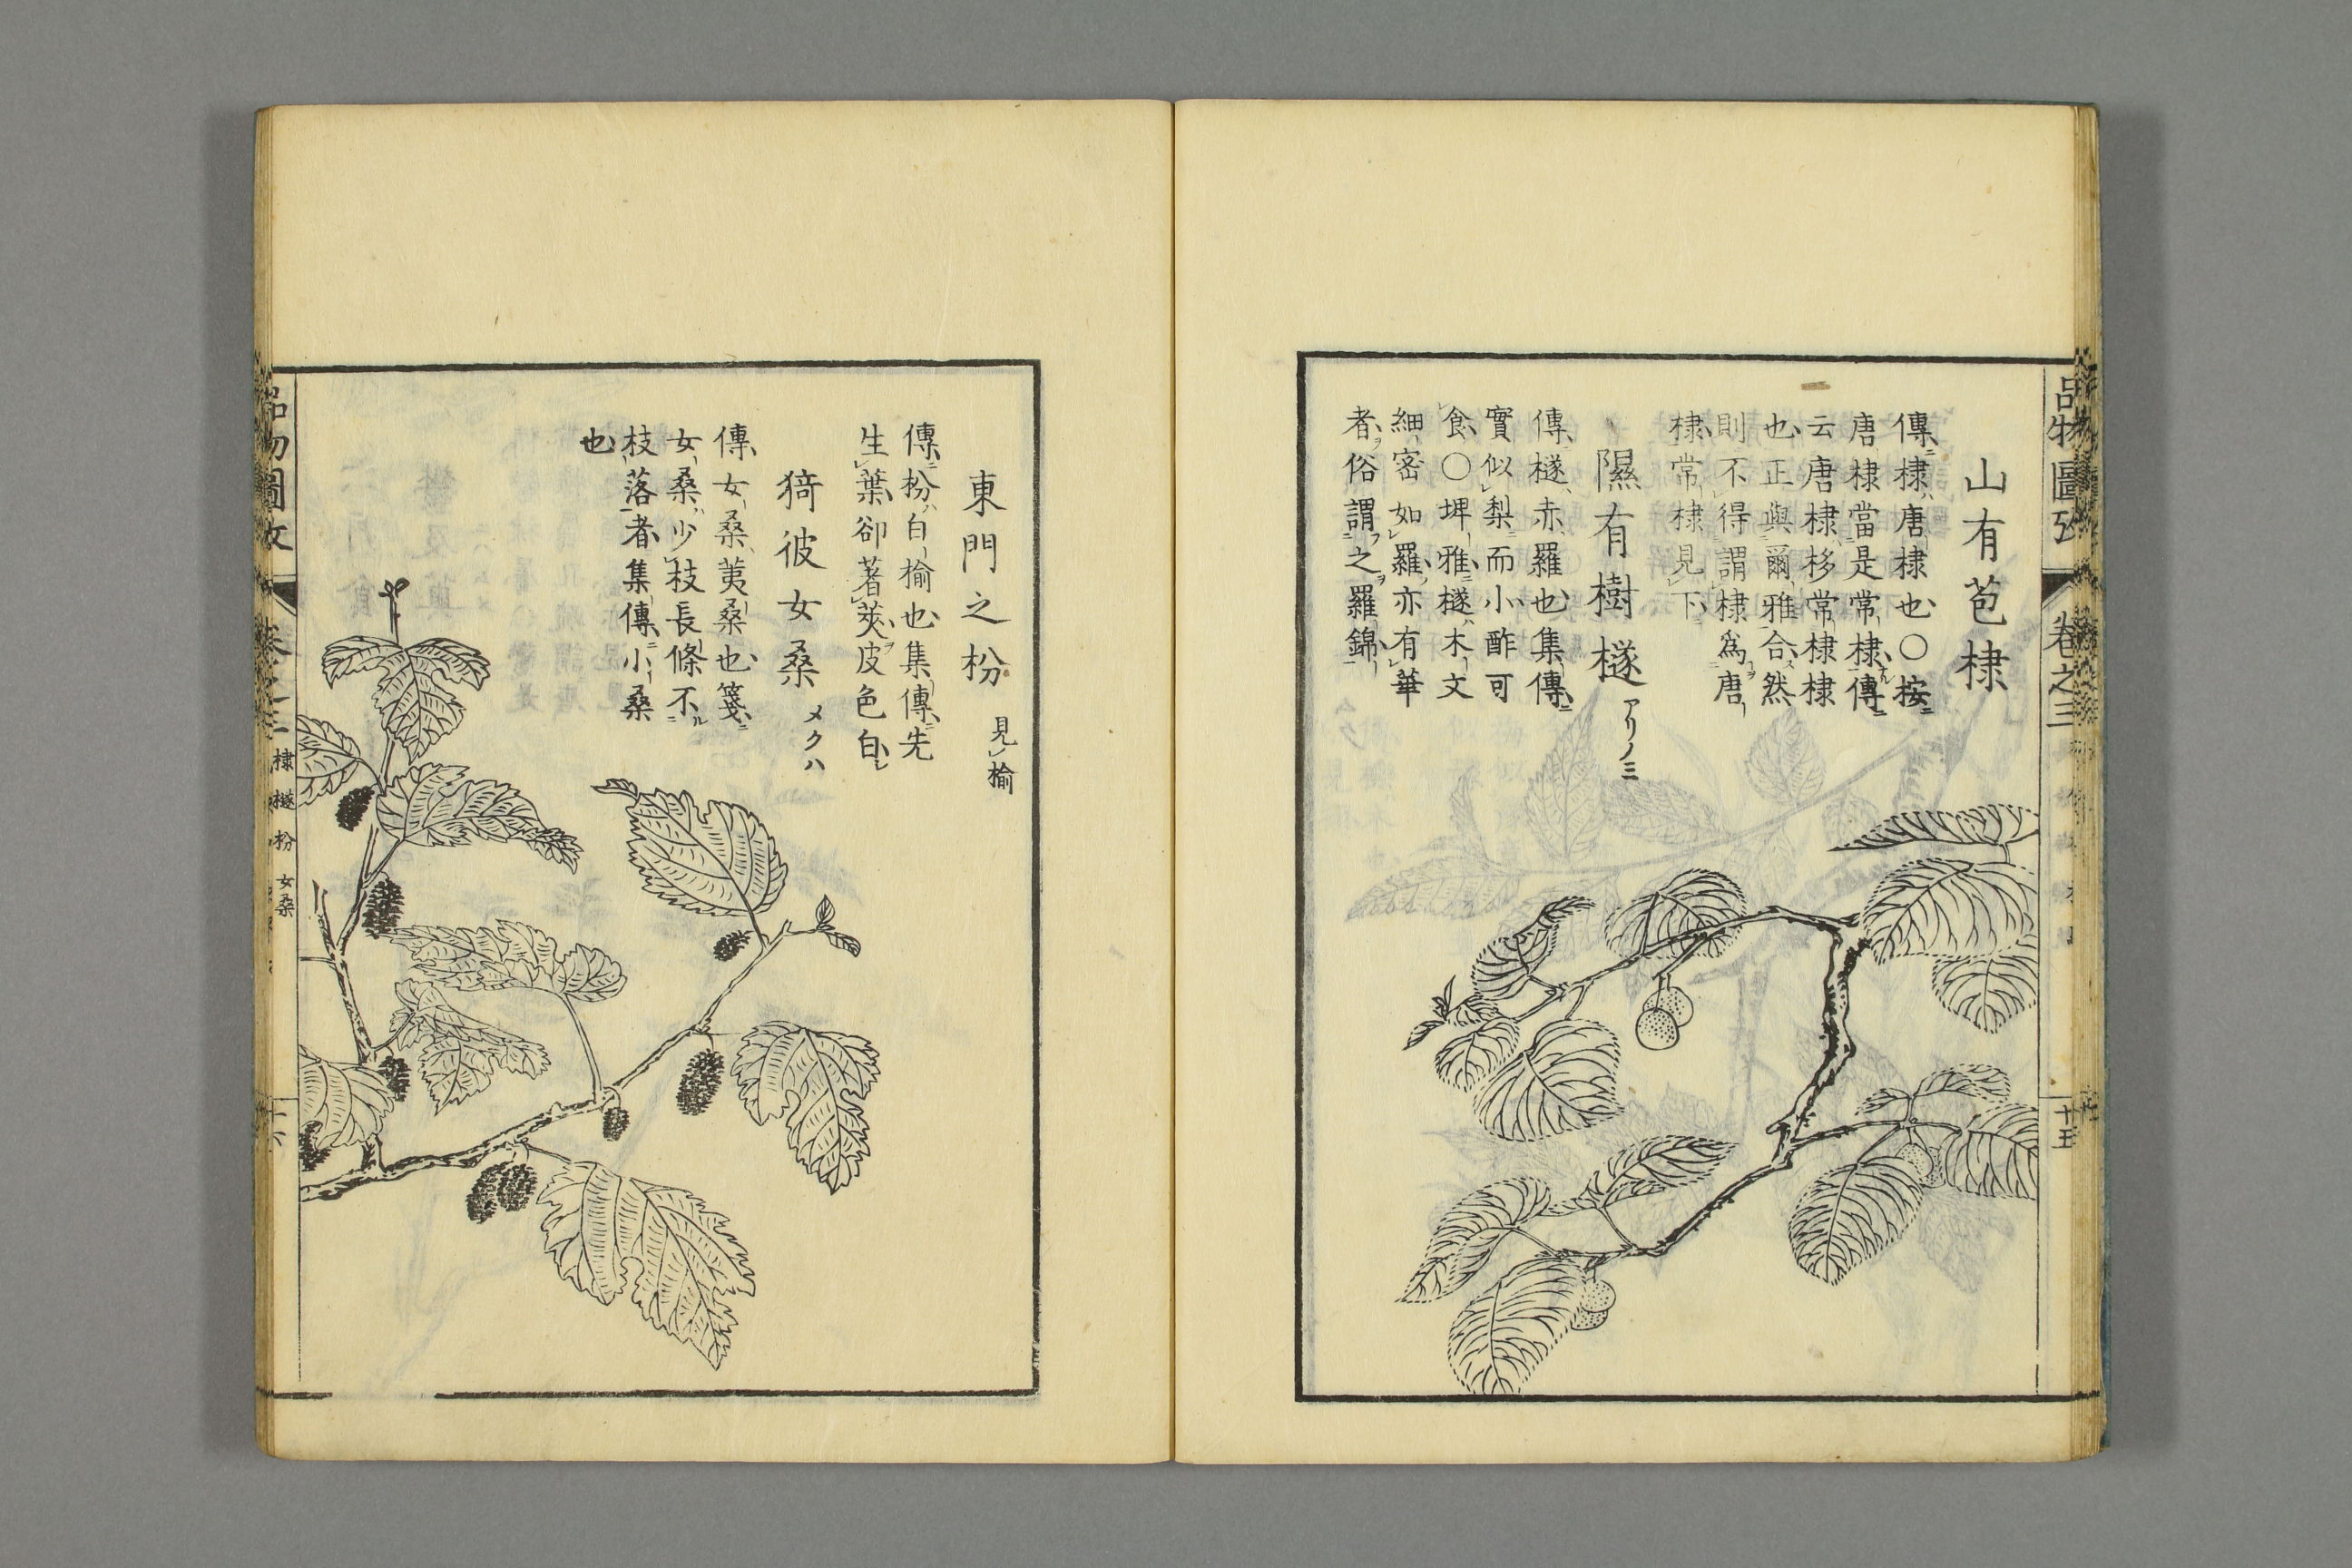 品物圖攷
卷之三
十五
山有苞棣
傳棣唐棣也〇按
唐棣當是常棣傳
云唐棣栘常棣棣
也正與爾雅合然
則不得謂棣爲唐
棣常棣見下
隰有樹檖 アリノミ
傳檖赤羅也集傳
實似梨而小酢可
食〇埤雅檖木文
細密如羅亦有華
者俗謂之羅錦
東門之枌 見榆
傳枌白榆也集傳先
生葉卻著莢皮色白
猗彼女桑 メクハ
傳女桑荑桑也箋
女桑少枝長條不
枝落者集傳小桑
也
品物圖攷
卷之三
棣 檖 枌 女桑
十六